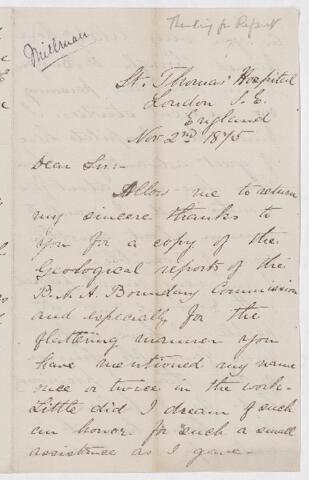 Millman
Thanking for Report
St. Thomas' Hospital
London S. E.
England
Nov 2nd 1875
Dear Sir:-
Allow me to return
my sincere thanks to
you for a copy of the
Geological reports of the
B. N. A. Boundary Commission
and especially for the
flattering manner you
have mentioned my name
once or twice in the work-
Little did I dream of such
an honor for such a small
assistance as I gave-